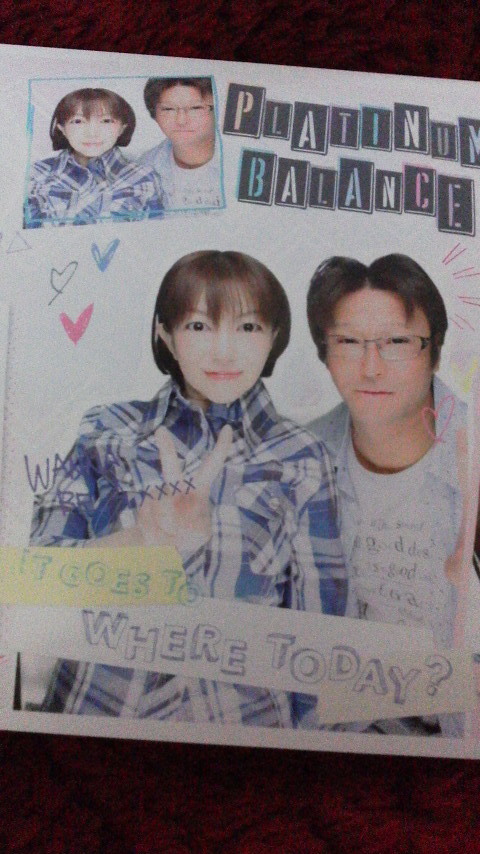 PLATINUM
BALANCE
WANNA
BE xxxx
IT GOES TO
WHERE TODAY?